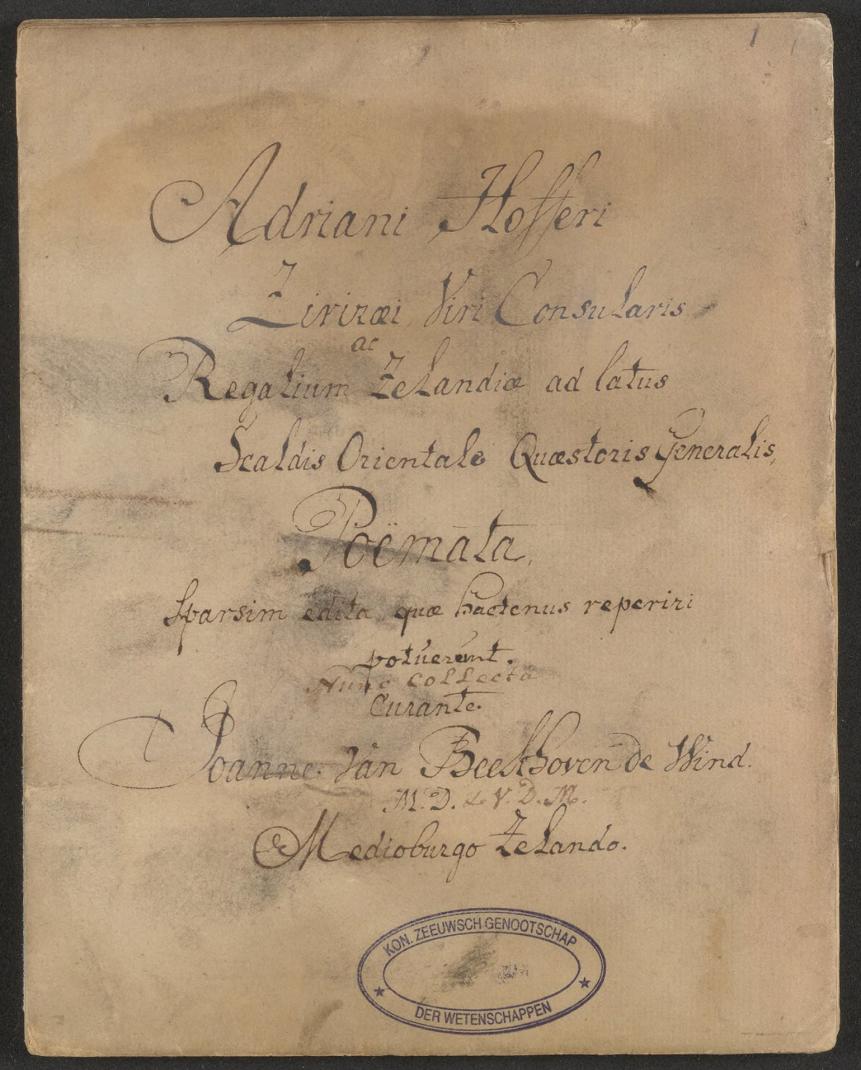 Adriani Hofferi
Zirizæi Viri Consularis
ac
Regalium Zelandiæ ad latus
Scaldis Orientale Quæstoris Generalis,
Poëmata,
Sparsim edita, quæ hactenus reperiri
potuerunt.
Nunc collecta
Curante.
Joanne. Van Beekhoven de Wind.
M. D. & V. D. M.
Medioburgo Zelando.
KON. ZEEUWSCH GENOOTSCHAP
DER WETENSCHAPPEN